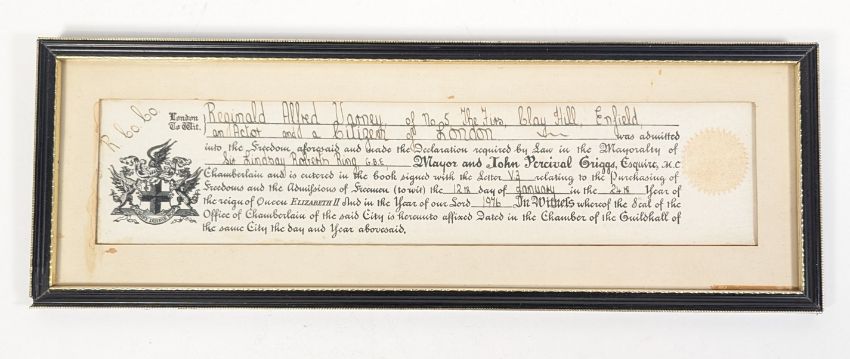 London
To Wit.
R Co Co
Reginald Alfred Varney of No 5 The Firs, Clay Hill, Enfield
an Actor and a Citizen of London was admitted
into the Freedom aforesaid and made the Declaration required by Law in the Mayoralty of
Sir Lindsay Roberts Ring G.B.E. Mayor and John Percival Griggs, Esquire, M.C
Chamberlain and is entered in the book signed with the Letter V3 relating to the Purchasing of
Freedoms and the Admissions of Freemen (to wit) the 12th day of January in the 24th Year of
the reign of Queen ELIZABETH II And in the Year of our Lord 1976 In Witness whereof the Seal of the
Office of Chamberlain of the said City is hereunto affixed Dated in the Chamber of the Guildhall of
the same City the day and Year abovesaid.